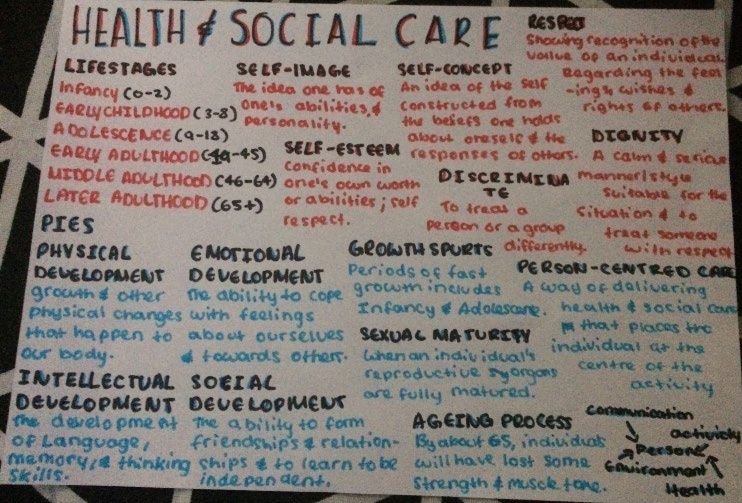 HEALTH & SOCIAL CARE
LIFESTAGES
Infancy (0-2)
EARLY CHILDHOOD (3-8)
ADOLESCENCE (9-18)
EARLY ADULTHOOD (19-45)
MIDDLE ADULTHOOD (46-64)
LATER ADULTHOOD (65+)
SELF-IMAGE
The idea one has of
one's abilities, &
personality.
SELF-ESTEEM
Confidence in
one's own worth
or abilities; self
respect.
SELF-CONCEPT
An idea of the self
constructed from
the beliefs one holds
about oneself & the
responses of others.
DISCRIMINA
TE
To treat a
person or a group
differently.
RESPECT
Showing recognition of the
value of an individual.
Regarding the feel
-ings, wishes &
rights of others.
DIGNITY
A calm & serious
manner/style
suitable for the
situation & to
treat someone
with respect
PIES
PHYSICAL
DEVELOPMENT
growth & other
physical changes
that happen to
our body.
EMOTIONAL
DEVELOPMENT
The ability to cope
with feelings
about ourselves
& towards others.
INTELLECTUAL
DEVELOPMENT
The development
of Language,
memory, & thinking
skills.
SOCIAL
DEVELOPMENT
The ability to form
friendships & relation-
ships & to learn to be
independent.
GROWTH SPURTS
Periods of fast
growth includes
Infancy & Adolescence.
SEXUAL MATURITY
When an individual's
reproductive organs
are fully matured.
AGEING PROCESS
By about 65, individuals
will have lost some
strength & muscle tone.
PERSON-CENTRED CARE
A way of delivering
health & social care
that places the
individual at the
centre of the
activity
Communication
activity
Person
Environment
Health